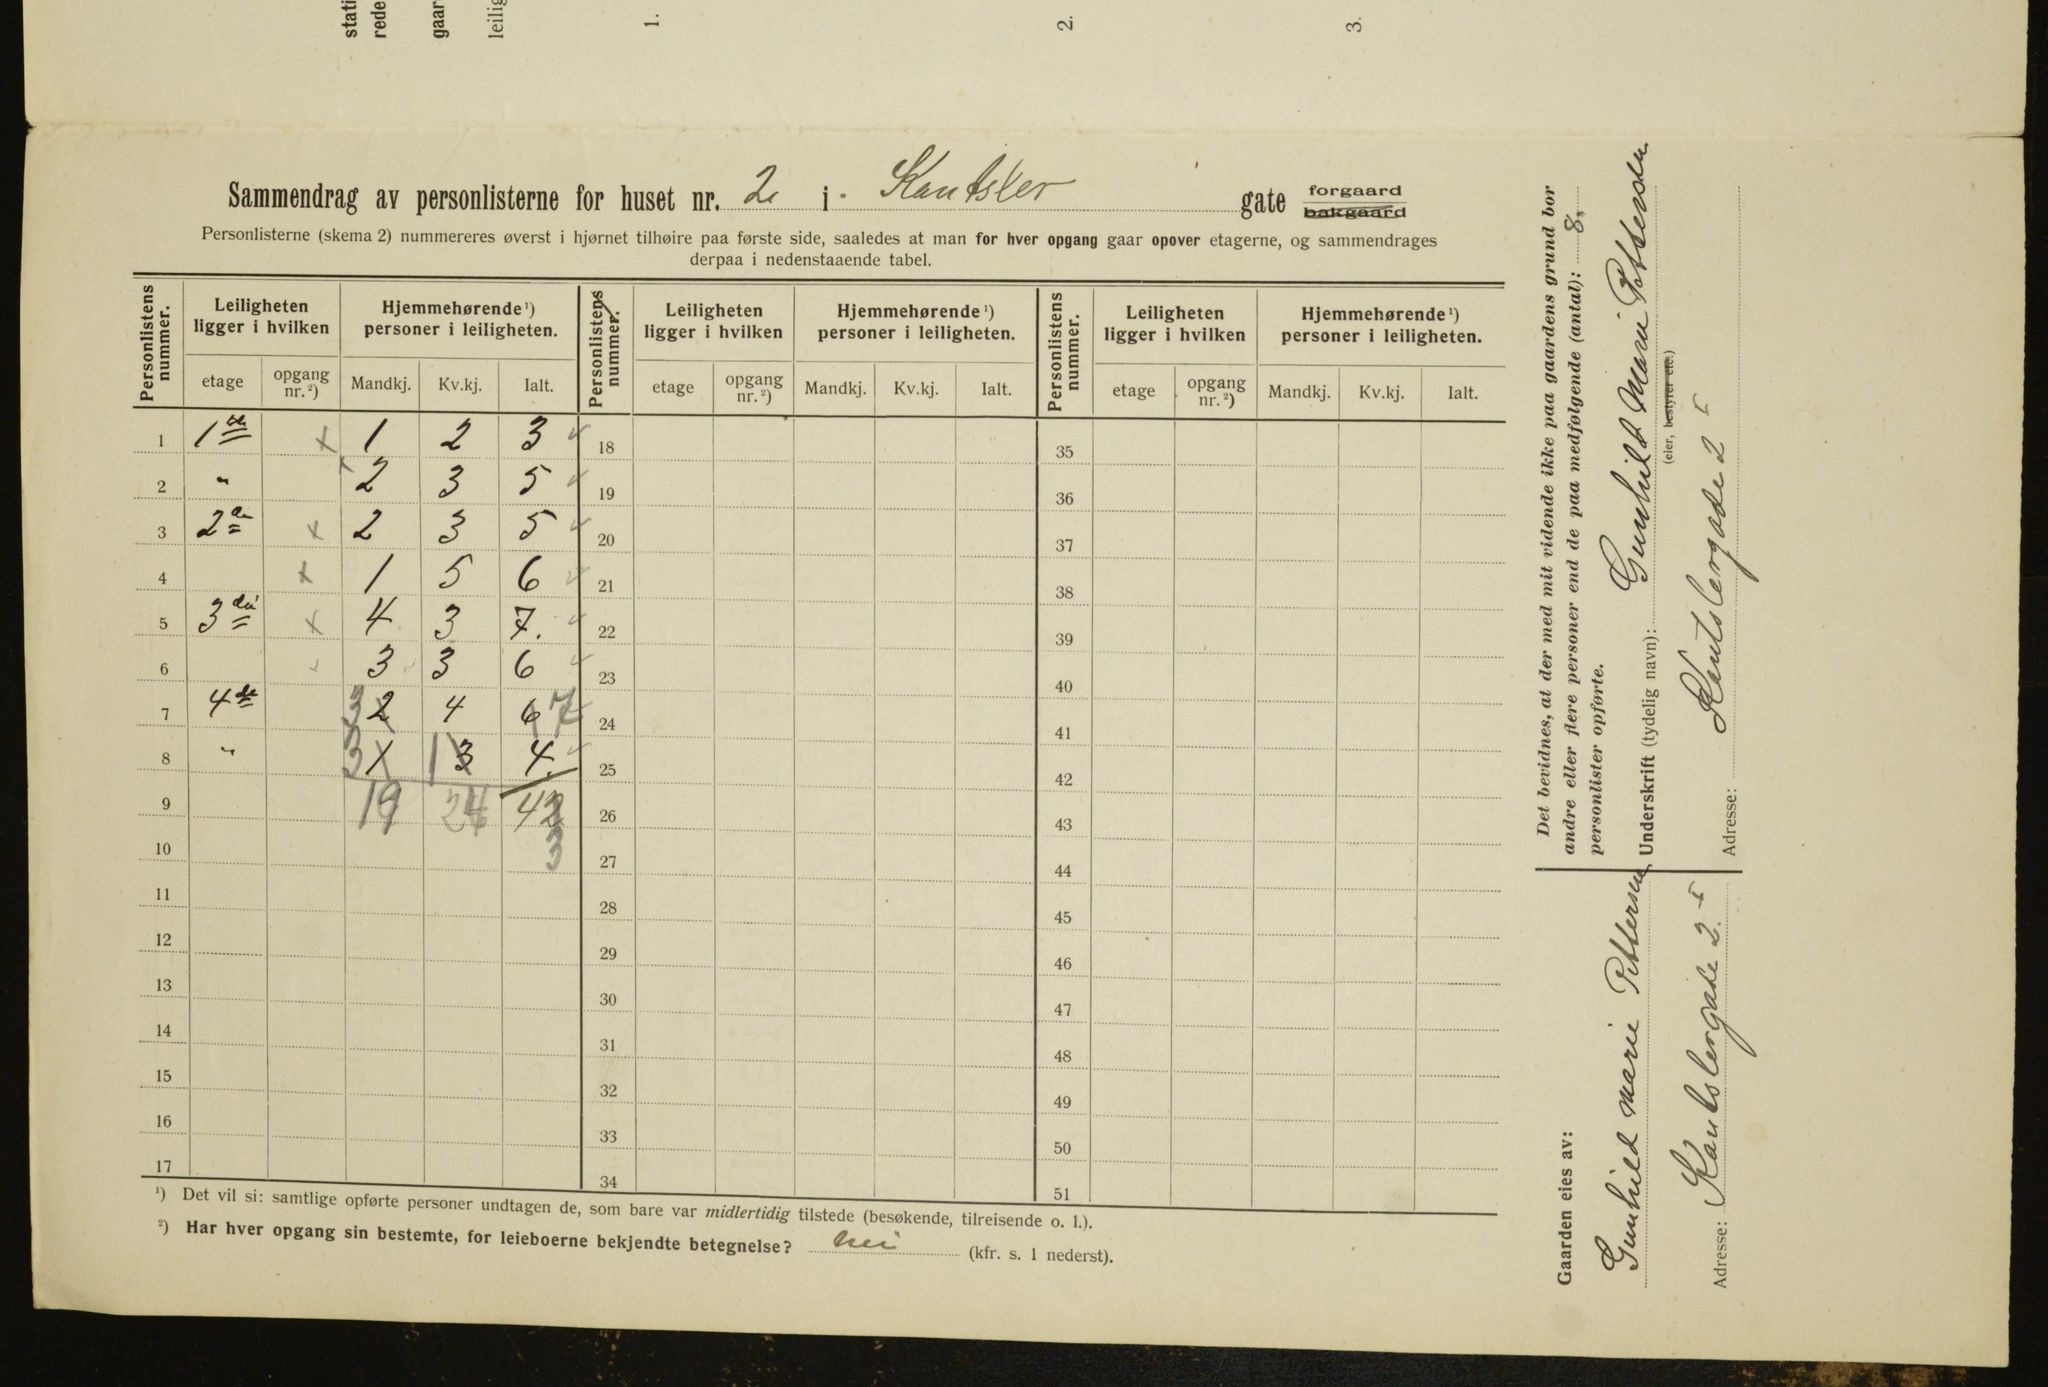 stati
rede
gaar
leilig
1.
2.
3.
Sammendrag av personlisterne for huset nr. 2 i Kantsler gate forgaard ~~bakgaard~~
Personlisterne (skema 2) nummereres øverst i hjørnet tilhøire paa første side, saaledes at man for hver opgang gaar opover etagerne, og sammendrages
derpaa i nedenstaaende tabel.
Personlistens nummer. Leiligheten ligger i hvilken Hjemmehørende ¹) personer i leiligheten. Personlistens nummer. Leiligheten ligger i hvilken Hjemmehørende ¹) personer i leiligheten. Personlistens nummer. Leiligheten ligger i hvilken Hjemmehørende ¹) personer i leiligheten.
etage opgang nr. ²) Mandkj. Kv.kj. Ialt. etage opgang nr. ²) Mandkj. Kv.kj. Ialt. etage opgang nr. ²) Mandkj. Kv.kj. Ialt.
1 1ste x 1 2 3 ✓ 18 35
2 " x 2 3 5 ✓ 19 36
3 2de x 2 3 5 ✓ 20 37
4 x 1 5 6 ✓ 21 38
5 3die x 4 3 7. ✓ 22 39
6 3 3 6 ✓ 23 40
7 4de 3 ~~2~~ 4 ~~6~~ 7 24 41
8 " 3 ~~1~~ 1 ~~3~~ 4. ✓ 25 42
9 19 24 42 26 43
10 3 27 44
11 28 45
12 29 46
13 30 47
14 31 48
15 32 49
16 33 50
17 34 51
¹) Det vil si: samtlige opførte personer undtagen de, som bare var midlertidig tilstede (besøkende, tilreisende o. l.).
²) Har hver opgang sin bestemte, for leieboerne bekjendte betegnelse? nei (kfr. s. 1 nederst).
Det bevidnes, at der med mit vidende ikke paa gaardens grund bor
andre eller flere personer end de paa medfølgende (antal): 8,
personlister opførte.
Underskrift (tydelig navn): Gunhild Marie Pettersen
(eier, ~~bestyrer etc.~~)
Adresse: Kantslergade 2 I
Gaarden eies av:
Gunhild Marie Pettersen
Adresse: Kantslergade 2. I